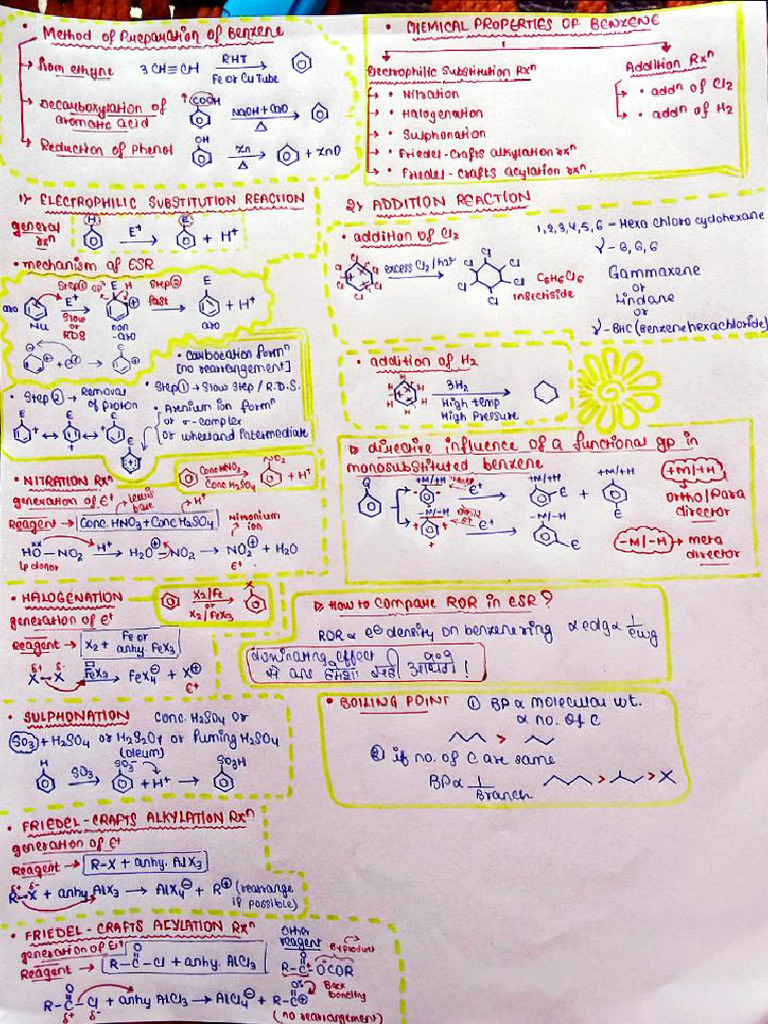 • Method of Preparation of Benzene
→ From ethyne 3 CH≡CH RHT Fe or Cu Tube
→ Decarboxylation of aromatic acid COOH NaOH + CaO Δ
→ Reduction of phenol OH Zn Δ + ZnO
• CHEMICAL PROPERTIES OF BENZENE
Electrophilic Substitution Rxⁿ
→ • Nitration
→ • Halogenation
→ • Sulphonation
→ • Friedel-Crafts alkylation rxⁿ
→ • Friedel-Crafts acylation rxⁿ.
Addition Rxⁿ
→ • addⁿ of Cl2
→ • addⁿ of H2
1) ELECTROPHILIC SUBSTITUTION REACTION
general rxⁿ H E⁺ E + H⁺
• mechanism of ESR
Step① E⁺ Slow or RDS E H Step② fast E + H⁺
aro Nu non-aro aro
• Carbocation formⁿ
[no rearrangement]
• Step① → Slow Step / R.D.S.
• Step② → Removal of proton
• Arenium ion formⁿ
or σ-complex
or wheland intermediate
E E E
• NITRATION Rxⁿ Conc HNO3 Conc H2SO4 NO2 + H⁺
generation of E⁺ lewis base H⁺
Reagent → Conc. HNO3 + Conc H2SO4
Nimonium ion
HO–NO2 H⁺ → H2O⊕–NO2 → NO2⊕ + H2O
lp donor E⁺
• HALOGENATION X2/Fe or X2/FeX3 X
generation of E⁺
Reagent → X2 + Fe or anhy. FeX3
δ⁺ δ⁻
X–X FeX3 → FeX4⊖ + X⊕
E⁺
• SULPHONATION Conc. H2SO4 or
SO3 + H2SO4 or H2S2O7 or Fuming H2SO4
(oleum)
H SO3 SO3⁻ + H⁺ → SO3H
• FRIEDEL-CRAFTS ALKYLATION Rxⁿ
generation of E⁺
Reagent → R–X + anhy. AlX3
δ⁺ δ⁻
R–X + anhy. AlX3 → AlX4⊖ + R⊕ (rearrange
if possible)
• FRIEDEL-CRAFTS ACYLATION Rxⁿ
generation of E⁺
Reagent → R–C–Cl + anhy. AlCl3
O
Other reagent Byproduct
O
R–C OCOR
Back bonding
R–C–Cl + anhy AlCl3 → AlCl4⊖ + R–C⊕
δ⁺ δ⁻ (no rearrangement)
2) ADDITION REACTION
• addition of Cl2
excess Cl2/hν
Cl Cl Cl Cl Cl Cl
C6H6Cl6
insectiside
1,2,3,4,5,6 – Hexa chloro cyclohexane
γ – 6,6,6
Gammaxene
or
Lindane
or
γ – BHC (Benzene hexachloride)
• addition of H2
H H H H H H 3H2
High temp
High Pressure
▷ directive influence of a functional gp in
monosubstituted benzene
G
+M/+H E⁺ +M/+H E + +M/+H E
-M/-H E⁺ -M/-H E
+M/+H
ortho/para
director
-M/-H → meta
director
▷ How to compare ROR in ESR?
ROR ∝ e⊖ density on benzene ring ∝ edg ∝ 1/ewg
dominating effect
BOILING POINT ① BP ∝ molecular wt.
∝ no. of C
>
② if no. of C are same
BP ∝ 1/Branch > >